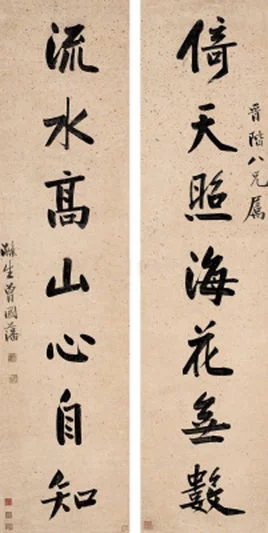 晉階八兄屬
倚天照海花無數
流水高山心自知
滌生曾國藩